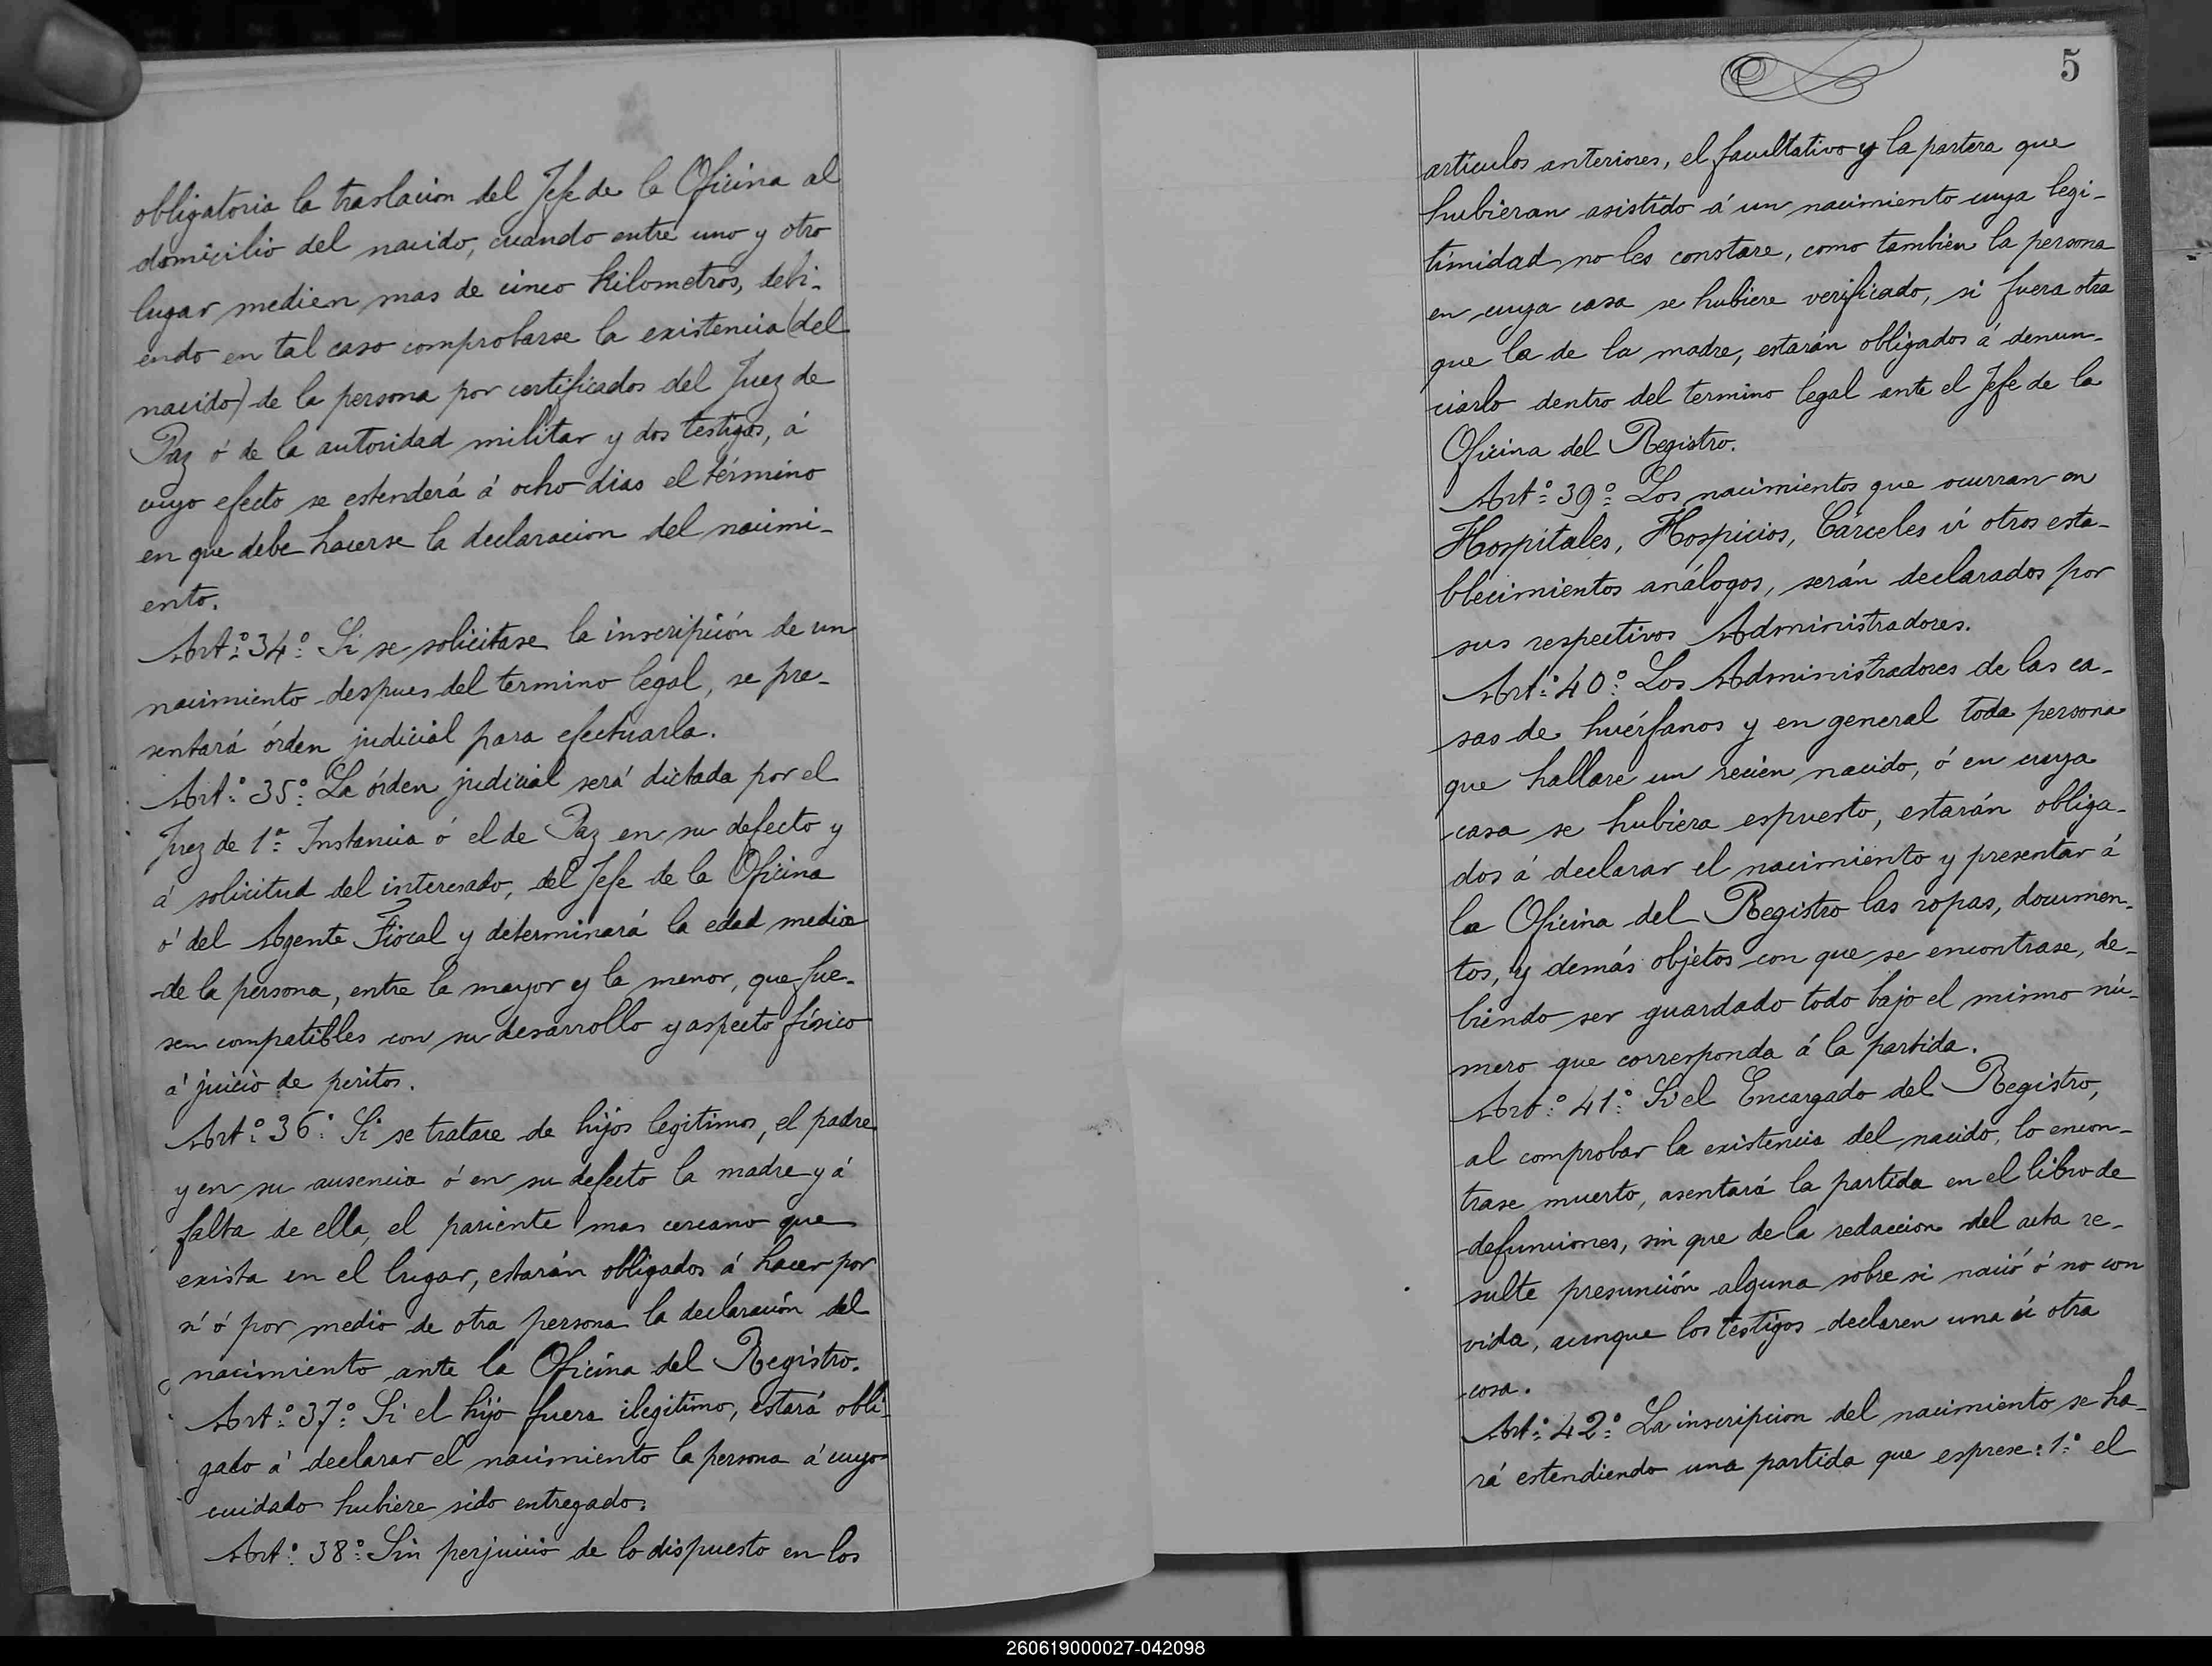 obligatoria la traslacion del Jefe de la Oficina al
domicilio del nacido, cuando entre uno y otro
lugar medien mas de cinco kilometros, debi-
endo en tal caso comprobarse la existencia (del
nacido) de la persona por certificados del Juez de
Paz ó de la autoridad militar y dos testigos, á
cuyo efecto se estenderá á ocho dias el término
en que debe hacerse la declaracion del nacimi-
ento.
Art.º 34.º Si se solicitase la inscripción de un
nacimiento despues del termino legal, se pre-
sentará órden judicial para efectuarla.
Art.º 35.º La órden judicial será dictada por el
Juez de 1.ª Instancia ó el de Paz en su defecto y
á solicitud del interesado, del Jefe de la Oficina
ó del Agente Fiscal y determinará la edad media
de la persona, entre la mayor y la menor, que fue-
sen compatibles con su desarrollo y aspecto físico
á juicio de peritos.
Art.º 36.º Si se tratare de hijos legitimos, el padre
y en su ausencia ó en su defecto la madre y á
falta de ella, el pariente mas cercano que
exista en el lugar, estarán obligados á hacer por
sí ó por medio de otra persona la declaración del
nacimiento ante la Oficina del Registro.
Art.º 37.º Si el hijo fuera ilegitimo, estará obli-
gado á declarar el nacimiento la persona á cuyo
cuidado hubiere sido entregado.
Art.º 38.º Sin perjuicio de lo dispuesto en los
5
articulos anteriores, el facultativo y la partera que
hubieran asistido á un nacimiento cuya legi-
timidad no les constare, como tambien la persona
en cuya casa se hubiere verificado, si fuera otra
que la de la madre, estarán obligados á denun-
ciarlo dentro del termino legal ante el Jefe de la
Oficina del Registro.
Art.º 39.º Los nacimientos que ocurran en
Hospitales, Hospicios, Cárceles ú otros esta-
blecimientos análogos, serán declarados por
sus respectivos Administradores.
Art.º 40.º Los Administradores de las ca-
sas de huérfanos y en general toda persona
que hallare un recien nacido, ó en cuya
casa se hubiera espuesto, estarán obliga-
dos á declarar el nacimiento y presentar á
la Oficina del Registro las ropas, documen-
tos, y demás objetos con que se encontrase, de-
biendo ser guardado todo bajo el mismo nú-
mero que corresponda á la partida.
Art.º 41.º Si el Encargado del Registro,
al comprobar la existencia del nacido, lo encon-
trase muerto, asentará la partida en el libro de
defunciones, sin que de la redaccion del acta re-
sulte presunción alguna sobre si nació ó no con
vida, aunque los testigos declaren una ú otra
cosa.
Art.º 42.º La inscripcion del nacimiento se ha-
rá estendiendo una partida que esprese: 1.º el
260619000027-042098